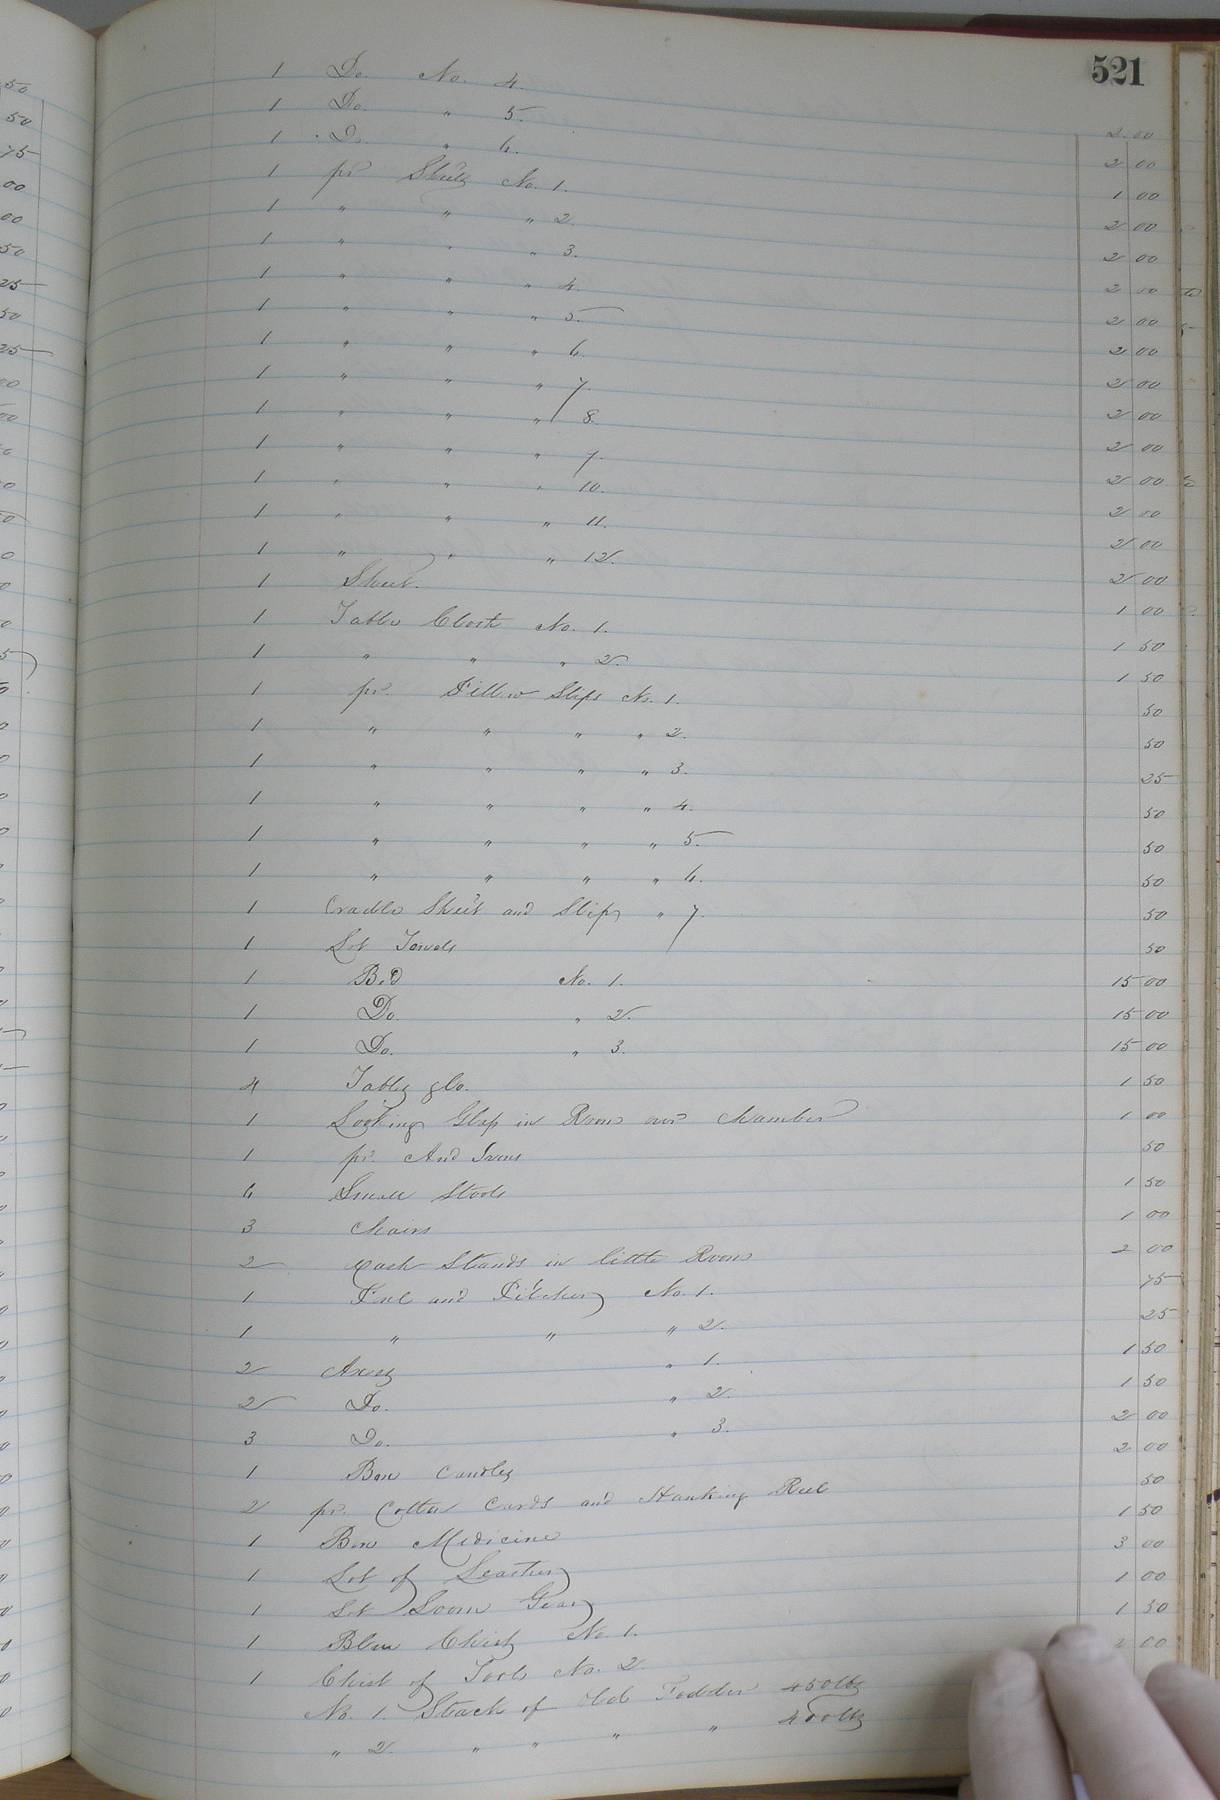 521
1 Do. No. 4. 2 00
1 Do. " 5. 2 00
1 Do. " 6. 1 00
1 pr Sheets No. 1. 2 00
1 " " " 2. 2 00
1 " " " 3. 2 00
1 " " " 4. 2 00
1 " " " 5. 2 00
1 " " " 6. 2 00
1 " " " 7. 2 00
1 " " " 8. 2 00
1 " " " 9. 2 00
1 " " " 10. 2 00
1 " " " 11. 2 00
1 " " " 12. 2 00
1 Sheet. 1 00
1 Table Cloth No. 1. 1 50
1 " " " 2. 1 50
1 pr. Pillow Slips No. 1. 50
1 " " " " 2. 50
1 " " " " 3. 25
1 " " " " 4. 50
1 " " " " 5. 50
1 " " " " 6. 50
1 Cradle Sheet and Slips " 7. 50
1 Lot Towels 50
1 Bed No. 1. 15 00
1 Do. " 2. 15 00
1 Do. " 3. 15 00
4 Tables &c. 1 50
1 Looking Glass in Room over Chamber 1 00
1 pr. And Irons 50
6 Small Stools 1 50
3 Chairs 1 00
2 Wash Stands in little Room 2 00
1 and Pitcher No. 1. 75
1 " " " 2. 25
2 Axes " 1. 1 50
2 Do. " 2. 1 50
3 Do. " 3. 2 00
1 Box Candles 2 00
2 pr. Cotton Cards and Hanking Reel 50
1 Box Medicine 1 50
1 Lot of Leather 3 00
1 Lot Loom Gear 1 00
1 Blue Chest No. 1. 1 50
1 Chest of Tools No. 2. 2 00
No. 1. Stack of Old Fodder 450 lbs
" 2. " " " " 400 lbs